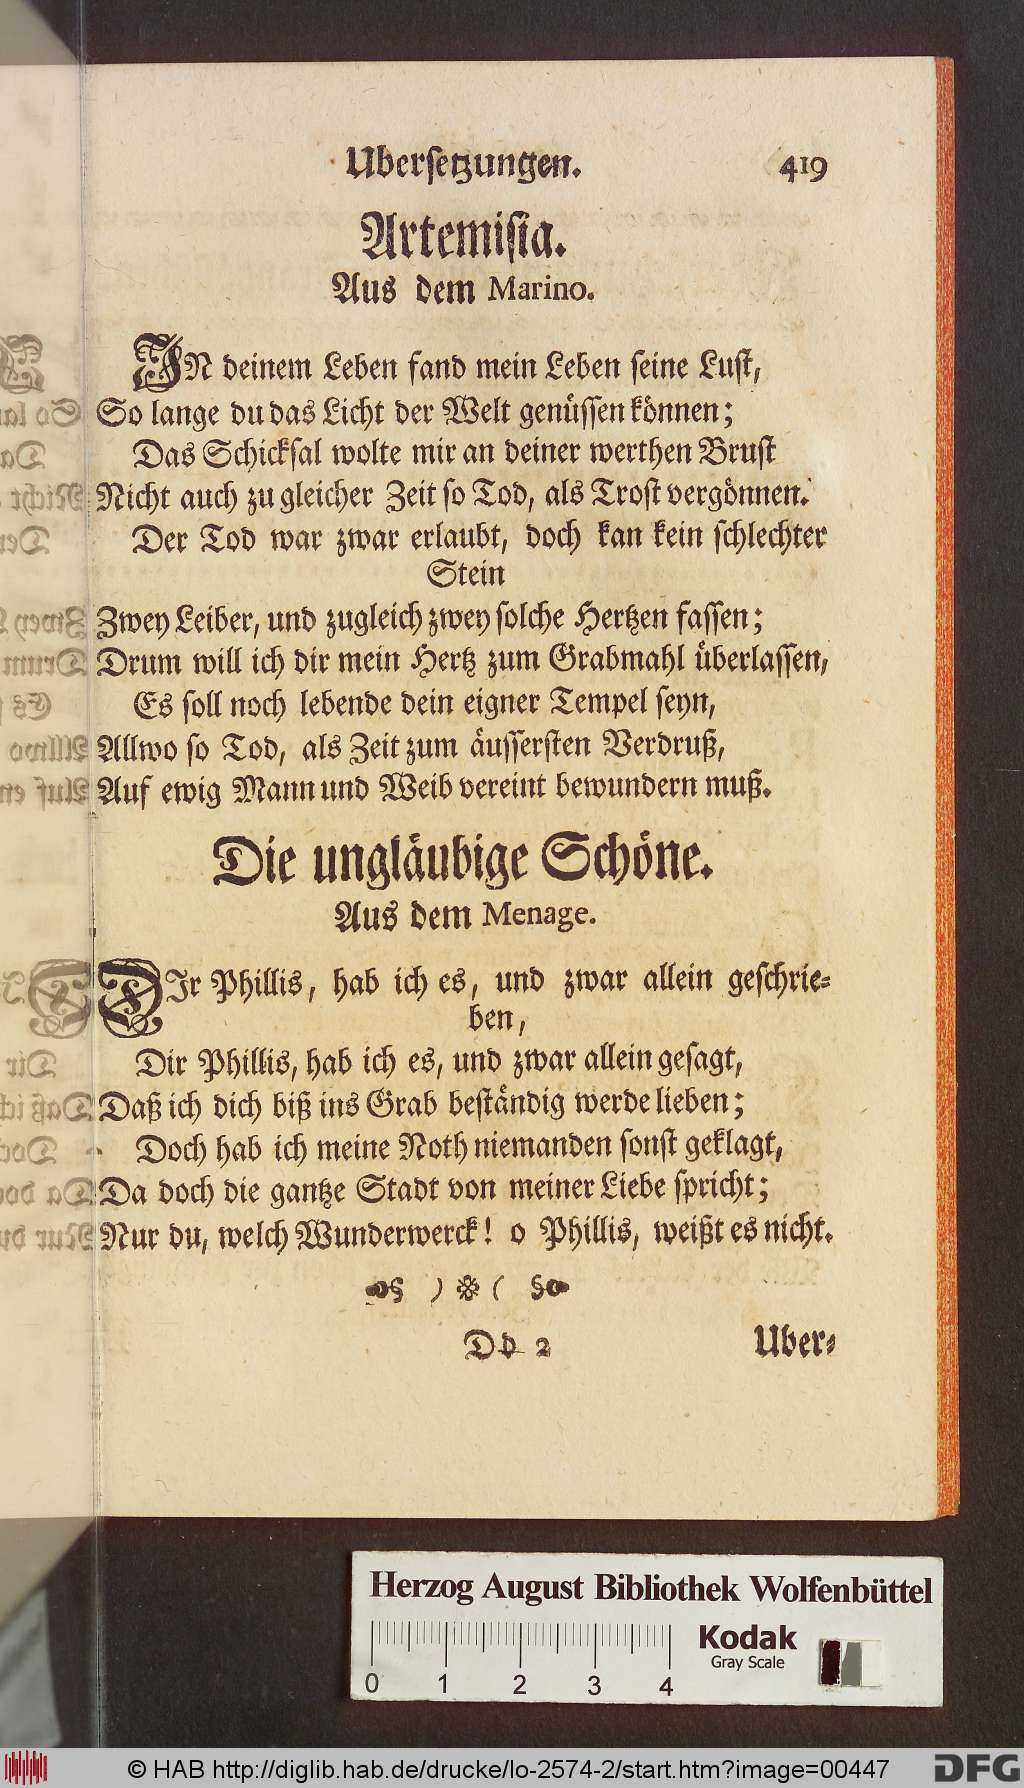 Ubersetzungen. 419
Artemisia.
Aus dem Marino.
IN deinem Leben fand mein Leben seine Lust,
So lange du das Licht der Welt genüssen können;
Das Schicksal wolte mir an deiner werthen Brust
Nicht auch zu gleicher Zeit so Tod, als Trost vergönnen.
Der Tod war zwar erlaubt, doch kan kein schlechter
Stein
Zwey Leiber, und zugleich zwey solche Hertzen fassen;
Drum will ich dir mein Hertz zum Grabmahl überlassen,
Es soll noch lebende dein eigner Tempel seyn,
Allwo so Tod, als Zeit zum äussersten Verdruß,
Auf ewig Mann und Weib vereint bewundern muß.
Die ungläubige Schöne.
Aus dem Menage.
DIr Phillis, hab ich es, und zwar allein geschrie-
ben,
Dir Phillis, hab ich es, und zwar allein gesagt,
Daß ich dich biß ins Grab beständig werde lieben;
Doch hab ich meine Noth niemanden sonst geklagt,
Da doch die gantze Stadt von meiner Liebe spricht;
Nur du, welch Wunderwerck! o Phillis, weißt es nicht.
Dd 2 Uber-
Herzog August Bibliothek Wolfenbüttel
0 1 2 3 4
Kodak
Gray Scale
© HAB http://diglib.hab.de/drucke/lo-2574-2/start.htm?image=00447
DFG